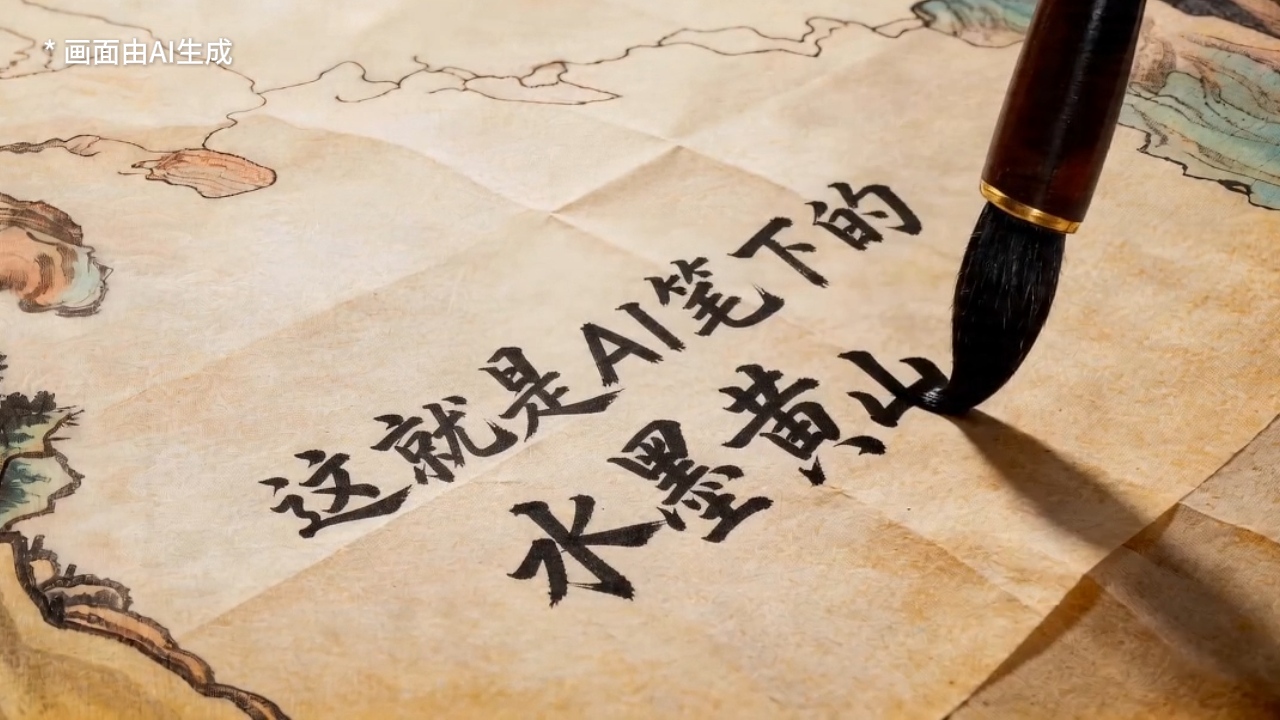 * 画面由AI生成
这就是AI笔下的
水墨黄山